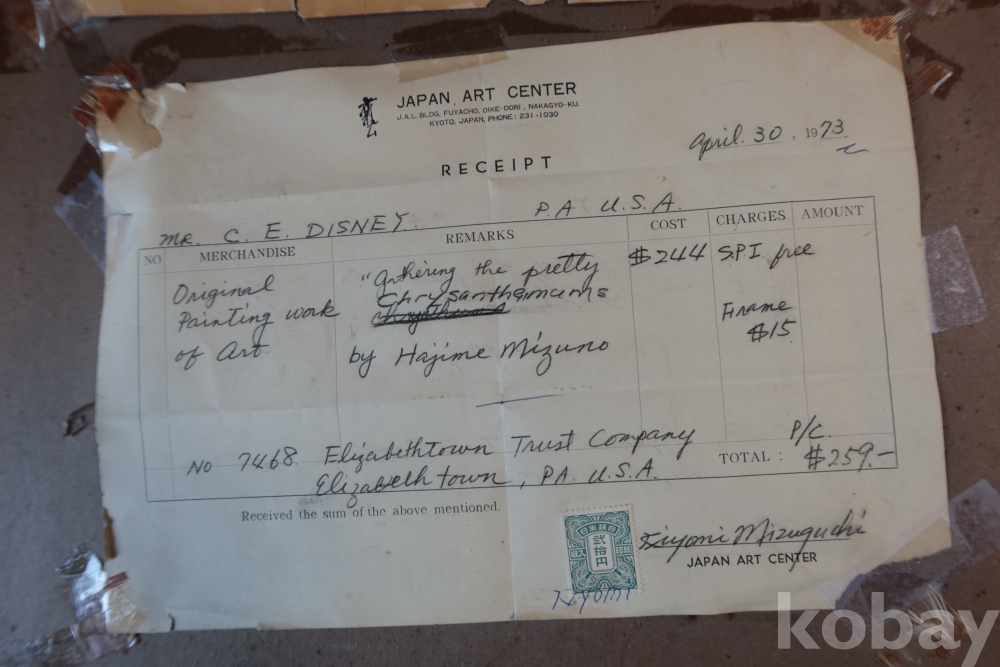 JAPAN ART CENTER
J.A.L. BLDG, FUYACHO, OIKE-DORI, NAKAGYO-KU,
KYOTO, JAPAN, PHONE: 231-1030
April. 30. 1973
RECEIPT
MR. C. E. DISNEY. PA U.S.A.
NO MERCHANDISE REMARKS COST CHARGES AMOUNT
Original "Gathering the pretty $244 S.P.I free
Painting work Chrysanthemums Frame
of Art by Hajime Mizuno $15
No 7468 Elizabethtown Trust Company P/C.
Elizabethtown, PA. U.S.A. TOTAL: $259.-
Received the sum of the above mentioned.
日本政府
弐拾円
収入印紙
Kiyomi Mizuguchi
JAPAN ART CENTER
Kiyomi
kobay